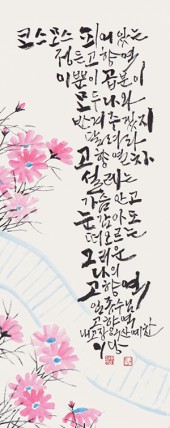 코스모스 피어있는
정든 고향역
이뿐이 곱뿐이
모두 나와
반겨 주겠지
달려라
고향열차
설레는
가슴 안고
눈 감아도
떠오르는
그리운
나의
고향역
임종수님
고향역
내고장 익산예찬